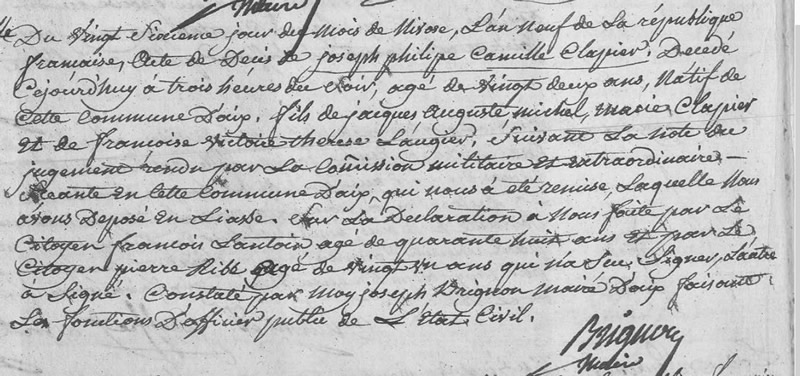 Maire
Du vingt Sixieme jour du Mois de Nivose, L'an neuf de La république
francaise, Acte de Decès de joseph philipe Camille Clapier. Decedé
Cejourd'huy à trois heures du Soir, agé de vingt deux ans, Natif de
Cette Commune D'aix. fils de jacques Auguste michel, marie Clapier
Et de francoise victoire therese Laugier, Suivant La note du
jugement rendu par La Commission militaire Et extraordinaire –
Séante En Cette Commune D'aix, qui nous à été remise, Laquelle Nous
avons Deposé En Liasse. Sur La Declaration à Nous faite par Le
Citoyen francois Lantoin agé de quarante huit ans Et par Le
Citoyen pierre Ribb agé de vingt un ans qui n'a Seu Signer, L'autre
à Signé. Constaté par Moy joseph Brignon maire D'aix faisant
Les fonctions D'officier public de L'Etat Civil.
Brignon
Maire